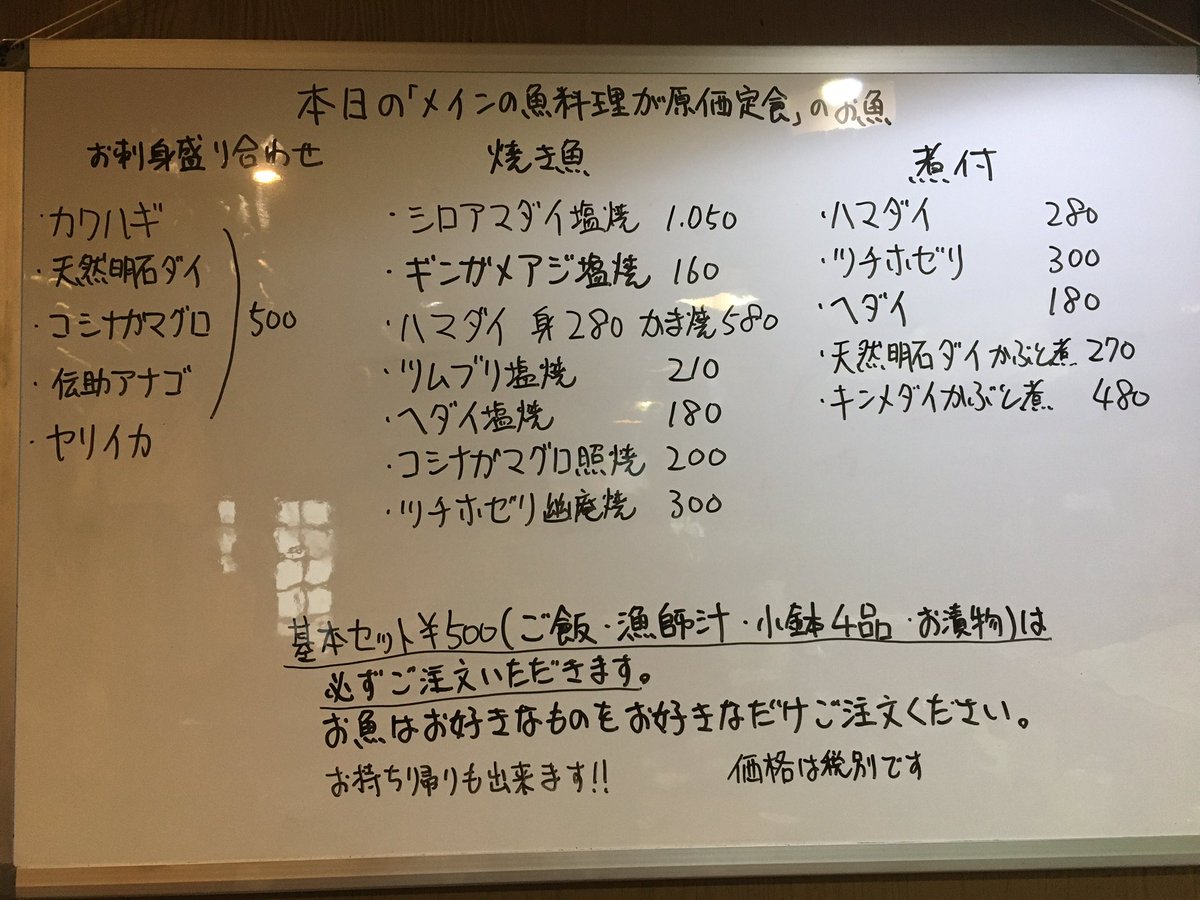 本日の「メインの魚料理が原価定食」のお魚
お刺身盛り合わせ
・カワハギ
・天然明石ダイ
・コシナガマグロ
・伝助アナゴ
・ヤリイカ
500
焼き魚
・シロアマダイ塩焼 1.050
・ギンガメアジ塩焼 160
・ハマダイ 身280 かま焼580
・ツムブリ塩焼 210
・ヘダイ塩焼 180
・コシナガマグロ照焼 200
・ツチホゼリ幽庵焼 300
煮付
・ハマダイ 280
・ツチホゼリ 300
・ヘダイ 180
・天然明石ダイかぶと煮 270
・キンメダイかぶと煮 480
基本セット¥500(ご飯・漁師汁・小鉢4品・お漬物)は
必ずご注文いただきます。
お魚はお好きなものをお好きなだけご注文ください。
お持ち帰りも出来ます!!
価格は税別です